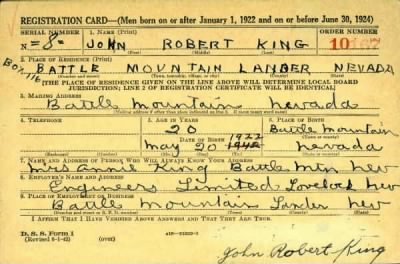 REGISTRATION CARD—(Men born on or after January 1, 1922 and on or before June 30, 1924)
SERIAL NUMBER 1. NAME (Print) ORDER NUMBER
=8= JOHN ROBERT KING 10
(First) (Middle) (Last)
2. PLACE OF RESIDENCE (Print)
BOX 76 BATTLE MOUNTAIN LANDER NEVADA
(Number and street) (Town, township, village, or city) (County) (State)
[THE PLACE OF RESIDENCE GIVEN ON THE LINE ABOVE WILL DETERMINE LOCAL BOARD
JURISDICTION; LINE 2 OF REGISTRATION CERTIFICATE WILL BE IDENTICAL]
3. MAILING ADDRESS
Battle Mountain nevada
4. TELEPHONE 5. AGE IN YEARS 6. PLACE OF BIRTH
20 Battle Mountain
DATE OF BIRTH 1922
May 20 1942 nevada
7. NAME AND ADDRESS OF PERSON WHO WILL ALWAYS KNOW YOUR ADDRESS
Mrs Annie King Battle Mtn Nev
8. EMPLOYER'S NAME AND ADDRESS
Engineers Limited Lovelock Nev
9. PLACE OF EMPLOYMENT OR BUSINESS
Battle Mountain Lander Nev
(Number and street or R. F. D. number) (Town) (County) (State)
I AFFIRM THAT I HAVE VERIFIED ABOVE ANSWERS AND THAT THEY ARE TRUE.
D. S. S. Form 1
(Revised 6-1-42)
John Robert King